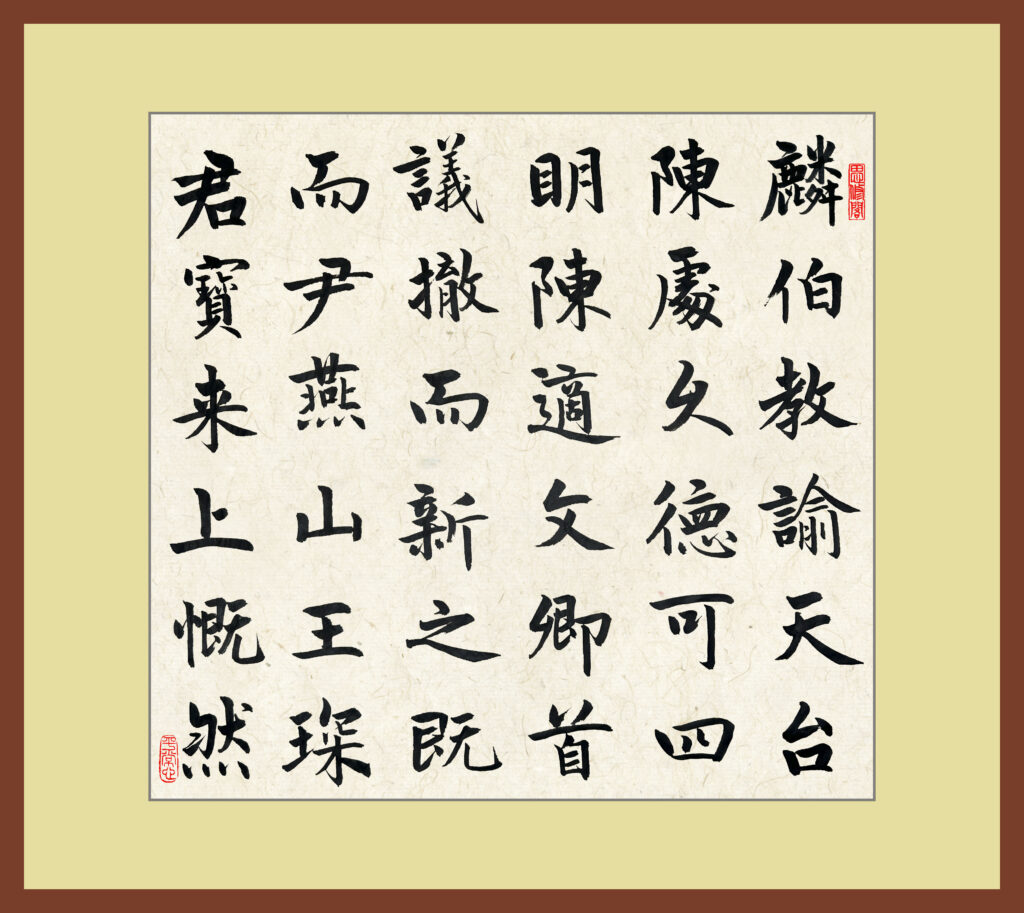 思修閣
麟伯教諭天台
陳處久德可四
明陳適文卿首
議撤而新之既
而尹燕山王琛
君寶来上慨然